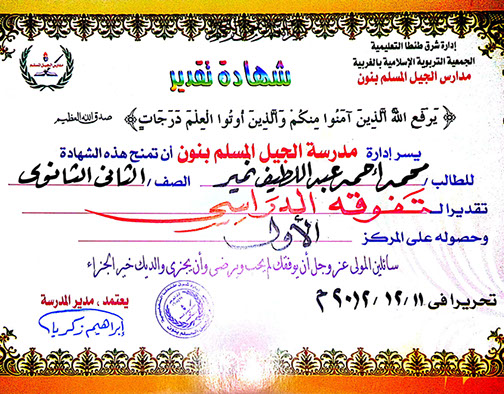 إدارة شرق طنطا التعليمية
الجمعية التربوية الإسلامية بالغربية
مدارس الجيل المسلم بنون
مدارس الجيل المسلم
شهادة تقدير
﴿ يَرْفَعِ اللهُ الَّذِينَ آمَنُوا مِنكُمْ وَالَّذِينَ أُوتُوا الْعِلْمَ دَرَجَاتٍ ﴾ صدق الله العظيم
يسر إدارة مدرسة الجيل المسلم بنون أن تمنح هذه الشهادة
للطالب / محمد أحمد عبد اللطيف نمير الصف / الثاني الثانوي
تقديرا لـ تفوقه الدراسي
وحصوله على المركز الأول
سائلين المولى عز وجل أن يوفقك لما يحب ويرضى وأن يجزى والديك خير الجزاء
تحريرا فى ١١ / ١٢ / ٢٠١٢ م
يعتمد ، مدير المدرسة
إبراهيم زكريا